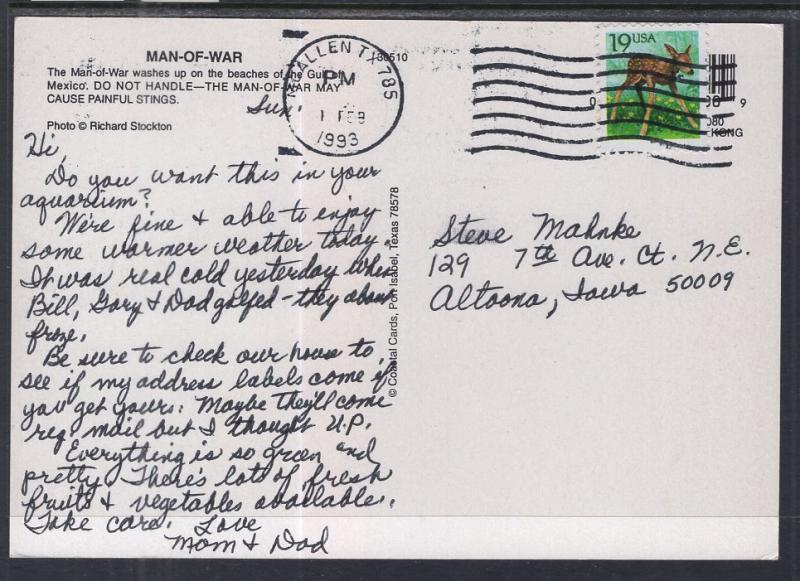 MAN-OF-WAR
The Man-of-War washes up on the beaches of the Gulf of
Mexico. DO NOT HANDLE—THE MAN-OF-WAR MAY
CAUSE PAINFUL STINGS.
Photo © Richard Stockton
Sun.
Hi,
Do you want this in your
aquarium?
We're fine & able to enjoy
some warmer weather today.
It was real cold yesterday when
Bill, Gary & Dad golfed - they about
froze.
Be sure to check our house to
see if my address labels come if
you get yours. Maybe they'll come
reg. mail but I thought U.P.
Everything is so green and
pretty. There's lots of fresh
fruits & vegetables available.
Take care. Love
Mom & Dad
© Coastal Cards, Port Isabel, Texas 78578
McALLEN TX 785
PM
1 FEB
1993
19 USA
9
080
KONG
Steve Mahnke
129 7th Ave. Ct. N.E.
Altoona, Iowa 50009